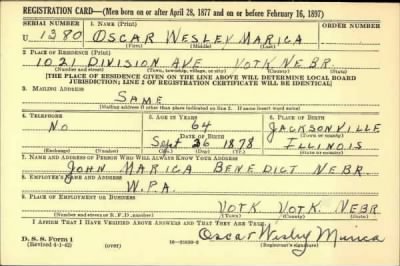 REGISTRATION CARD—(Men born on or after April 28, 1877 and on or before February 16, 1897)
SERIAL NUMBER 1. NAME (Print)
U 1380 OSCAR WESLEY MARICA
(First) (Middle) (Last)
2. PLACE OF RESIDENCE (Print)
1021 DIVISION AVE YORK NEBR.
(Number and street) (Town, township, village, or city) (County) (State)
[THE PLACE OF RESIDENCE GIVEN ON THE LINE ABOVE WILL DETERMINE LOCAL BOARD
JURISDICTION; LINE 2 OF REGISTRATION CERTIFICATE WILL BE IDENTICAL]
3. MAILING ADDRESS
SAME
[Mailing address if other than place indicated on line 2. If same insert word same]
4. TELEPHONE 5. AGE IN YEARS 6. PLACE OF BIRTH
NO 64 JACKSONVILLE
DATE OF BIRTH (Town or county)
Sept 26 1878 ILLINOIS
(Exchange) (Number) (Mo.) (Day) (Yr.) (State or country)
7. NAME AND ADDRESS OF PERSON WHO WILL ALWAYS KNOW YOUR ADDRESS
JOHN MARICA BENEDICT NEBR
8. EMPLOYER'S NAME AND ADDRESS
W.P.A.
9. PLACE OF EMPLOYMENT OR BUSINESS
YORK YORK NEBR
(Number and street or R. F. D. number) (Town) (County) (State)
I AFFIRM THAT I HAVE VERIFIED ABOVE ANSWERS AND THAT THEY ARE TRUE.
D. S. S. Form 1
(Revised 4-1-42) (over) 16-21630-2 Oscar Wesley Marica
(Registrant's signature)